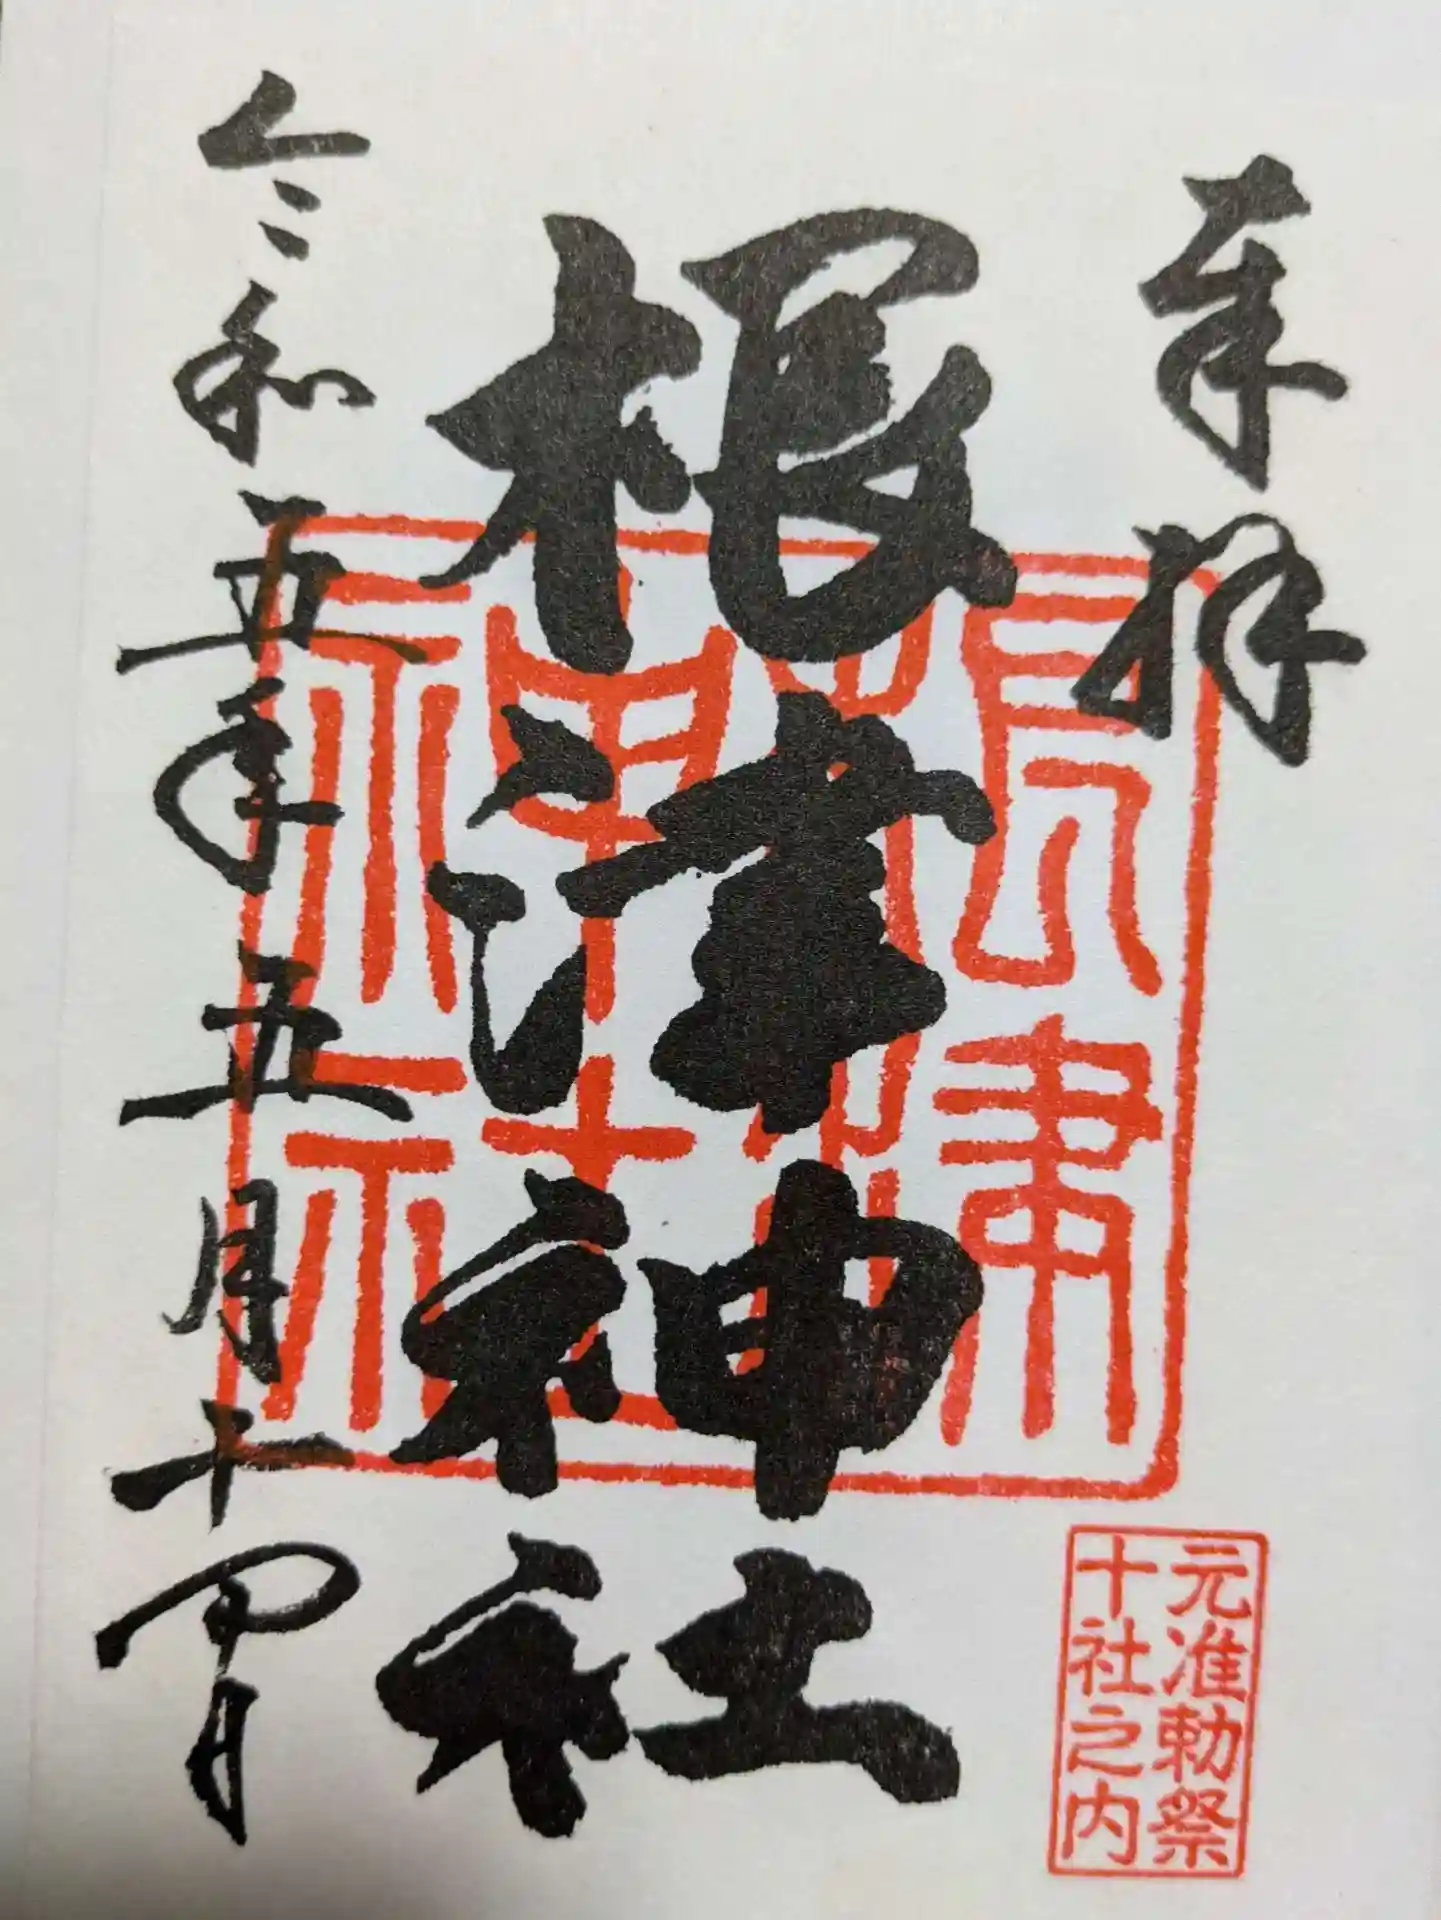 奉拝
元准勅祭
十社之内
根津神社
根津
神社
令和五年五月十